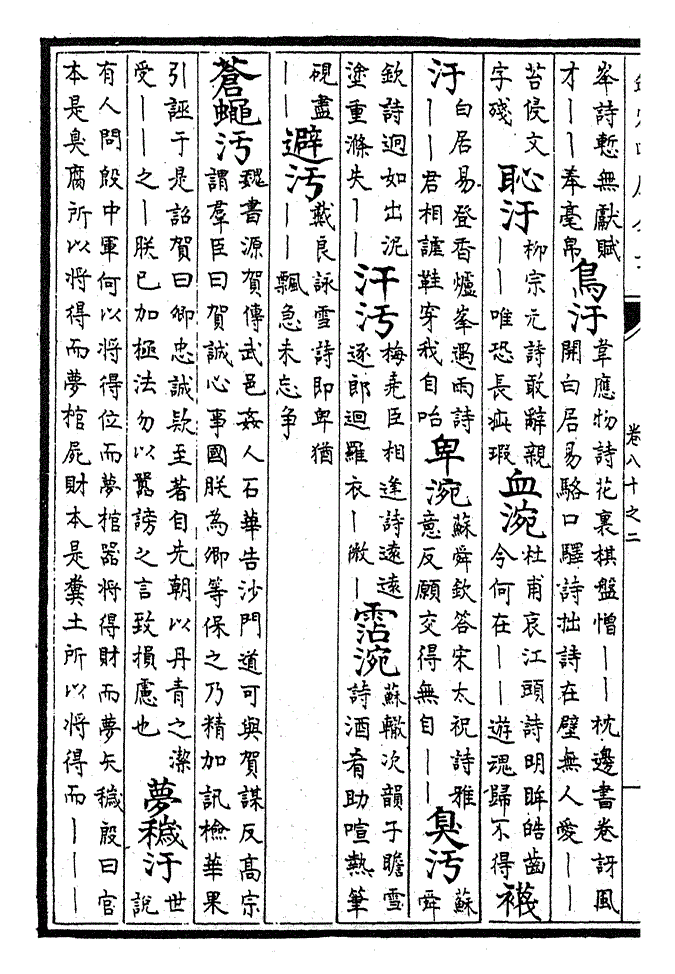 卷八十之二
峯詩慙無獻賦
才——奉毫帛
鳥汙
韋應物詩花裏棋盤憎——枕邊書卷訝風
開白居易駱口驛詩拙詩在壁無人愛——
苔侵文
字殘
恥汙
柳宗元詩敢辭親
——唯恐長疵瑕
血涴
杜甫哀江頭詩明眸皓齒
今何在——遊魂歸不得
襪
汙
白居易登香爐峯遇雨詩
——君相謔鞋穿我自咍
卑涴
蘇舜欽答宋太祝詩雅
意反願交得無自——
臭汚
蘇
舜
欽詩迥如出泥
塗重滌失——
汗汚
梅堯臣相逢詩遠遠
逐郎迴羅衣—微—
霑涴
蘇轍次韻子瞻雪
詩酒肴助喧熱筆
硯盡
——
避汚
戴良詠雪詩即卑猶
——飄急未忘争
蒼蠅汚
魏書源賀傳武邑姦人石華告沙門道可與賀謀反高宗
謂羣臣曰賀誠心事國朕為卿等保之乃精加訊檢華果
引誣于是詔賀曰卿忠誠款至著自先朝以丹青之潔
受——之—朕已加極法勿以嚚謗之言致損慮也
夢穢汙
世
説
有人問殷中軍何以將得位而夢棺器將得財而夢矢穢殷曰官
本是臭腐所以將得而夢棺屍財本是糞土所以將得而———